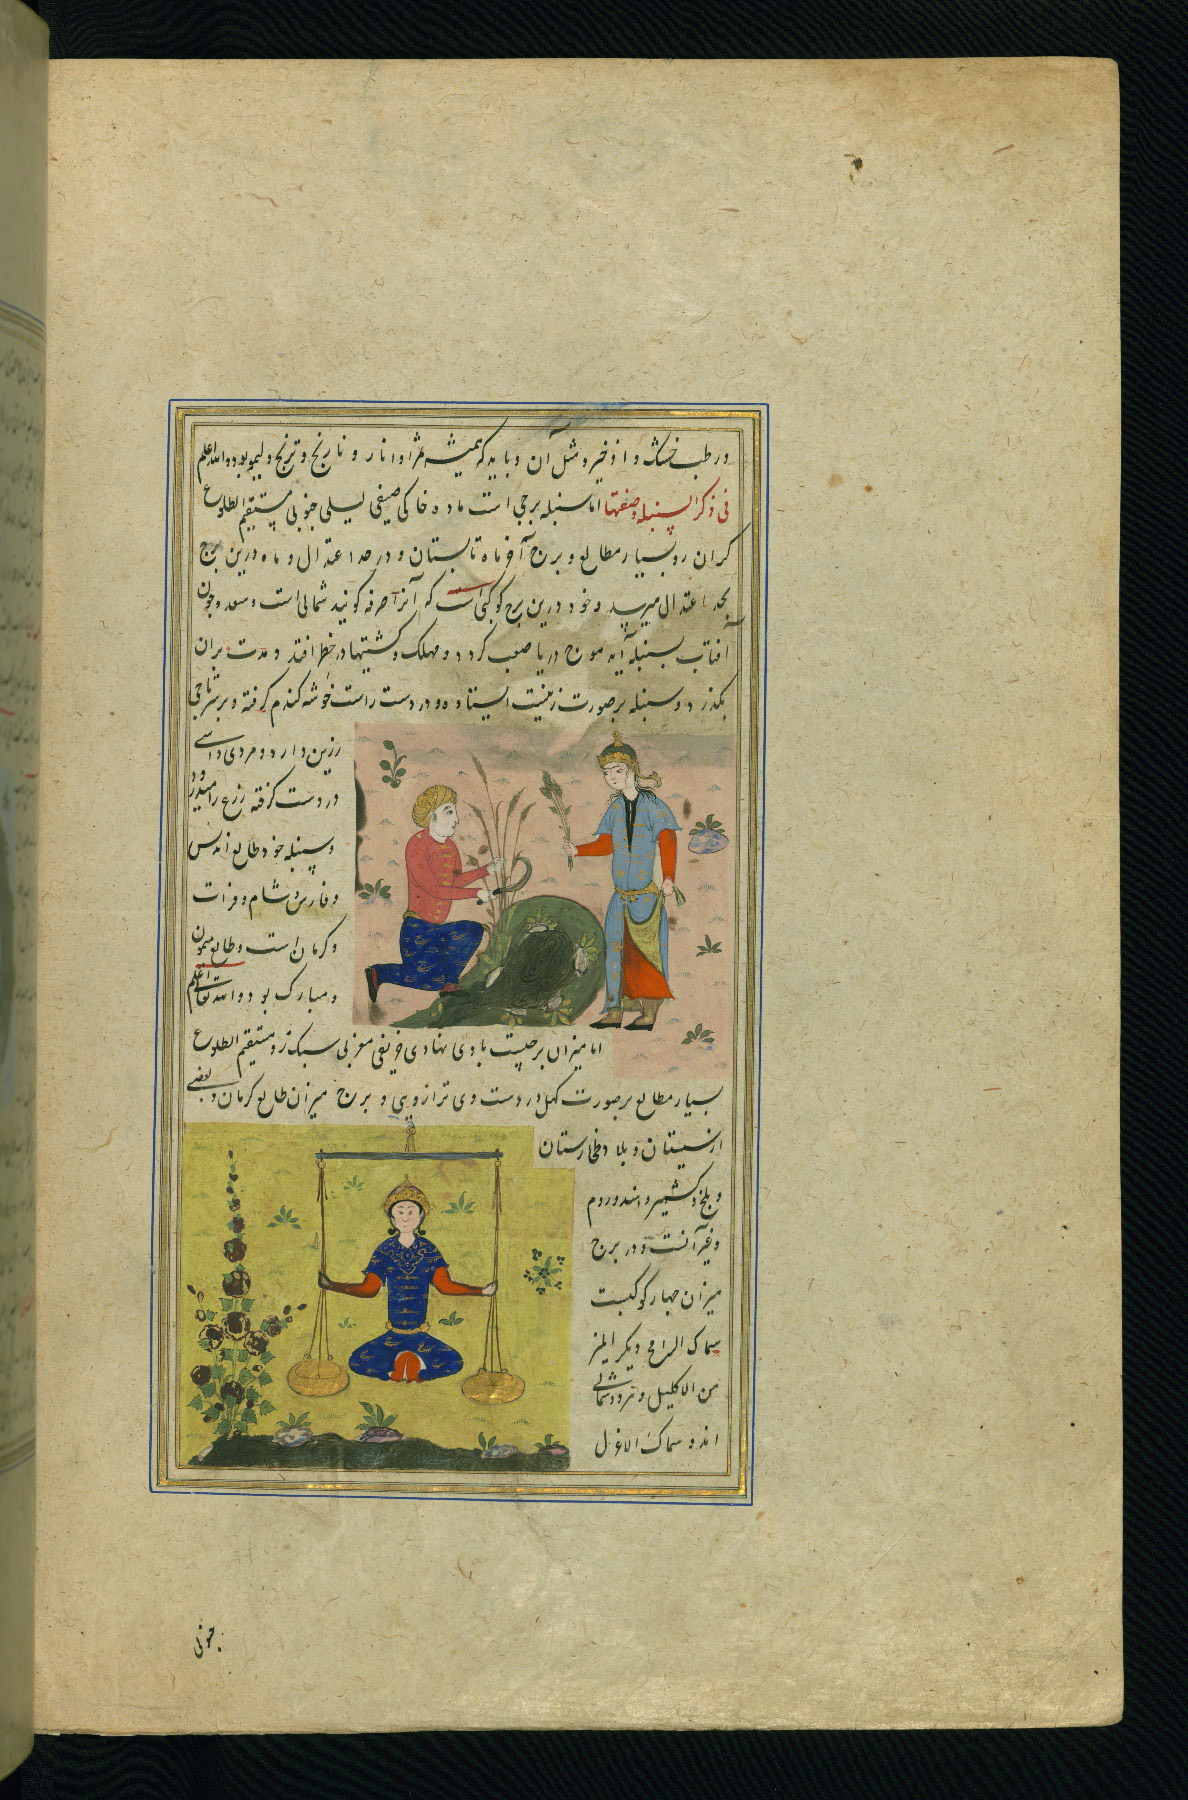 و رطب خشک و اذخیر و مثل آن و باید که همیشه ثمر او انار و نارنج و ترنج و لیمو بود و الله اعلم
فی ذکر السنبله وصفتها اما سنبله برجی است ماده خاکی صیفی لیلی جنوبی مستقیم الطلوع
کران رو بسیار مطالع و برج آخر ماه تابستان و در حد اعتدال و ماه درین برج
بحد اعتدال میرسد و خود درین برج کوکبی است که آنرا صرفه کویند شمالی است و سعد و چون
آفتاب بسنبله آید موج دریا صعب کردد و مهلک و کشتیها در خطر افتد و مدت بران
بکذرد و سنبله بر صورت زنیست ایستاده و در دست راست خوشه کندم کرفته و بر سر تاجی
زرین دارد و مردی داسی
در دست کرفته زرع را میدرود
و سنبله خود طالع اندلس
و فارس و شام و فرات
و کرمان است و طالع میمون
و مبارک بود و الله تعالی اعلم
اما میزان برجیست بادی نهادی خریفی مغربی سبک رو مستقیم الطلوع
بسیار مطالع بر صورت کهل در دست وی ترازویی و برج میزان طالع کرمان و بعضی
از سیستان و بلاد طخارستان
و بلخ و کشمیر و اند و روم
و غیر آنست و در برج
میزان چهار کوکبست
سماک الرامح و دیکر
من الاکلیل و شمالی
اند و سماک الاعزل
جنوبی